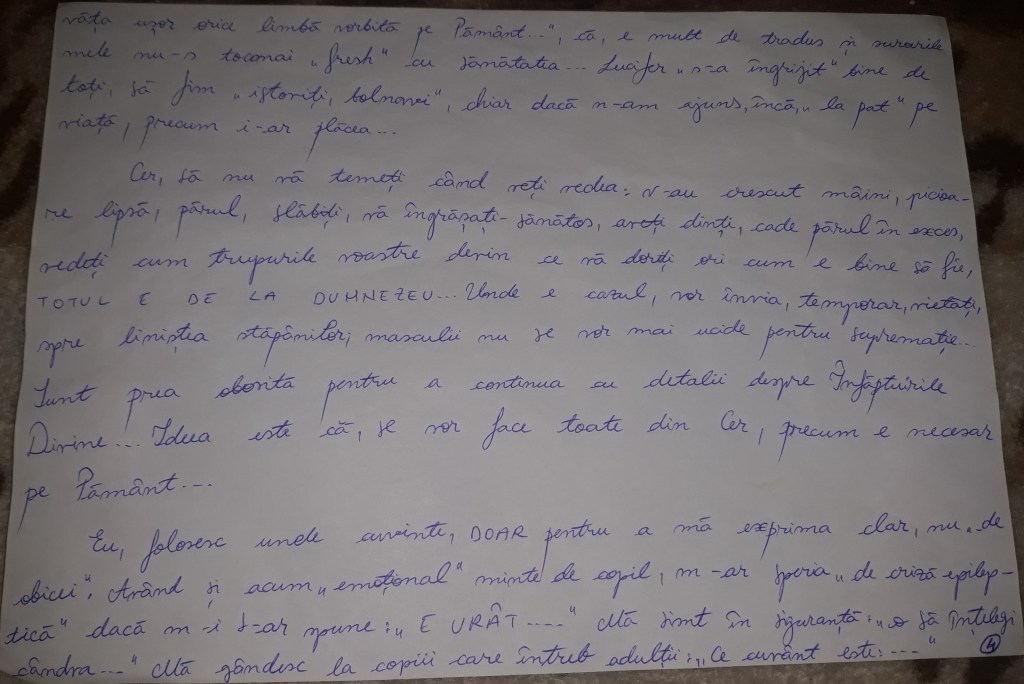 văța ușor orice limbă vorbită pe Pământ...", că, e mult de tradus și surorile
mele nu-s tocmai „fresh" cu sănătatea... Lucifer „s-a îngrijit" bine de
toți, să fim „istoviți, bolnavi", chiar dacă n-am ajuns, încă, „la pat" pe
viață, precum i-ar plăcea...
Cer, să nu vă temeți când veți vedea: v-au crescut mâini, picioa-
re lipsă, părul, slăbiți, vă îngrășați-sănătos, aveți dinți, cade părul în exces,
vedeți cum trupurile voastre devin ce vă doriți ori cum e bine să fie,
TOTUL E DE LA DUMNEZEU... Unde e cazul, vor învia, temporar, vietăți,
spre liniștea stăpânilor; masculii nu se vor mai ucide pentru supremație...
Sunt prea obosită pentru a continua cu detalii despre Înfăptuirile
Divine... Ideea este că, se vor face toate din Cer, precum e necesar
pe Pământ...
Eu, folosesc unele cuvinte, DOAR pentru a mă exprima clar, nu „de
obicei". Având și acum „emoțional" minte de copil, m-ar speria „de criză epilep-
tică" dacă m-i s-ar spune: „E URÂT....." Mă simt în siguranță: „o să înțelegi
cândva..." Mă gândesc la copiii care întreb adulții: „Ce cuvânt este: ...."
4